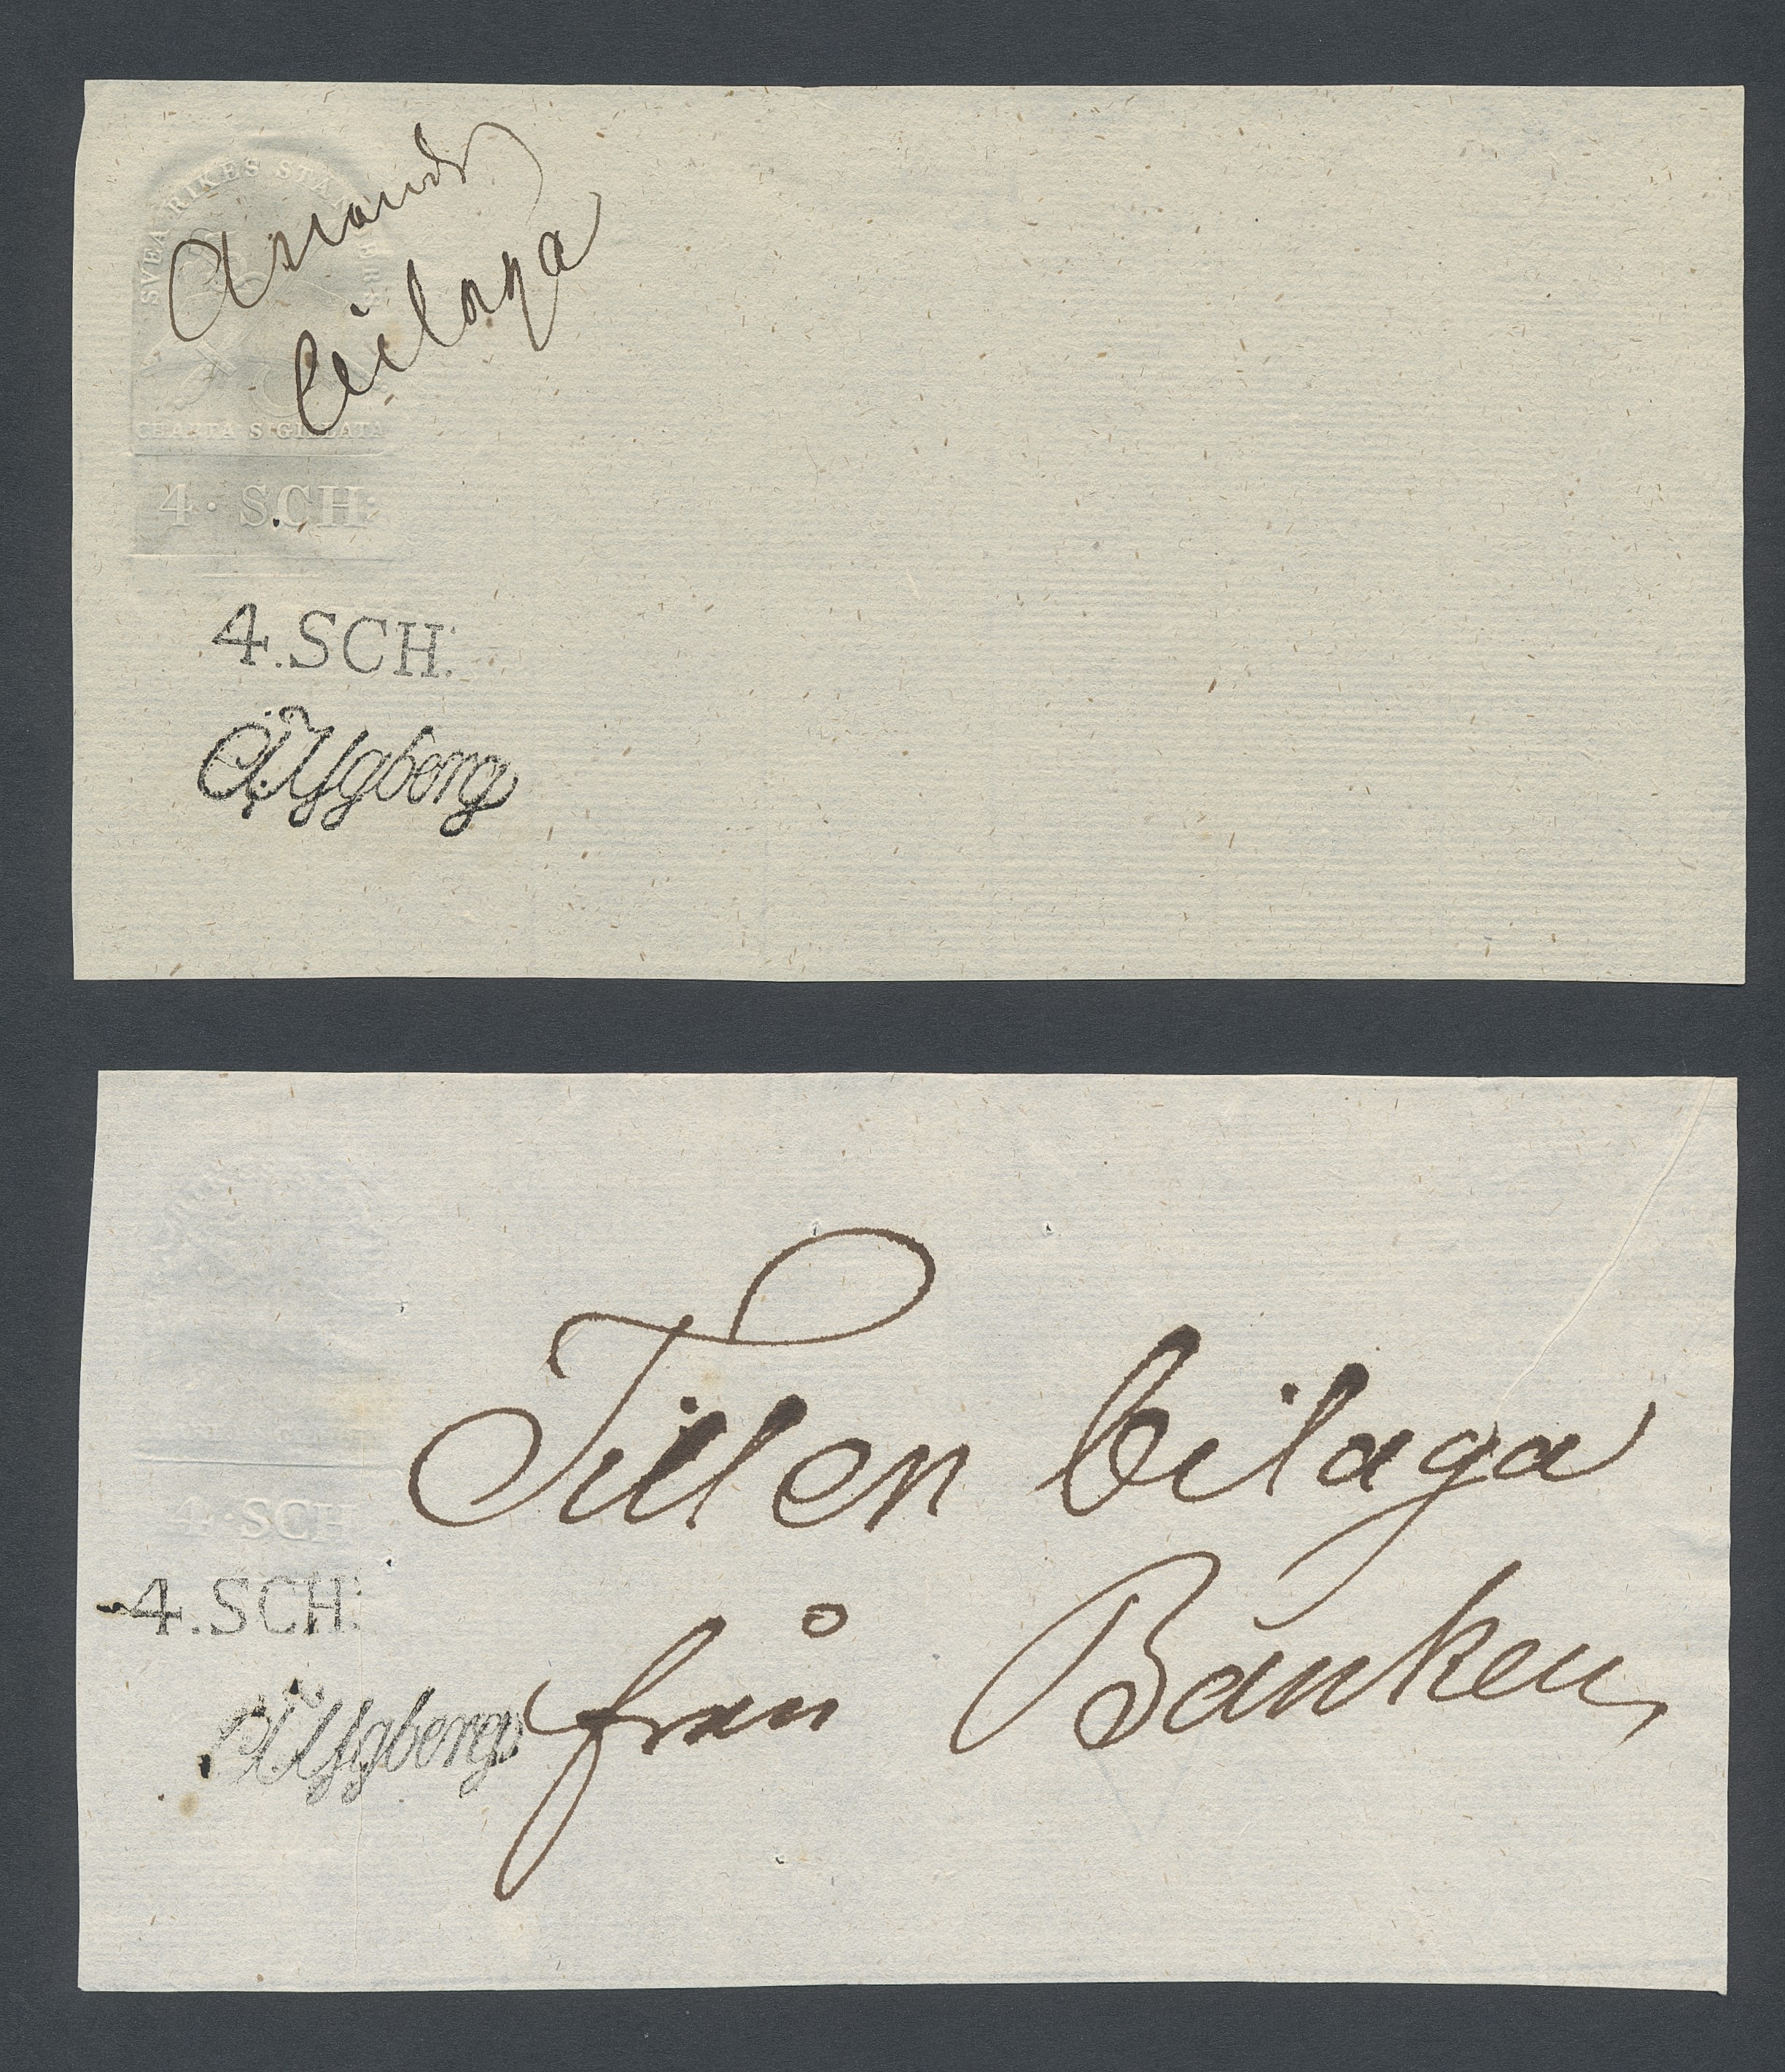 SVEA RIKES STÄNDERS
Arrends
bilaga
CHARTA SIGILLATA
4 · SCH:
4.SCH:
Till en bilaga
4 · SCH
4.SCH:
från Banken